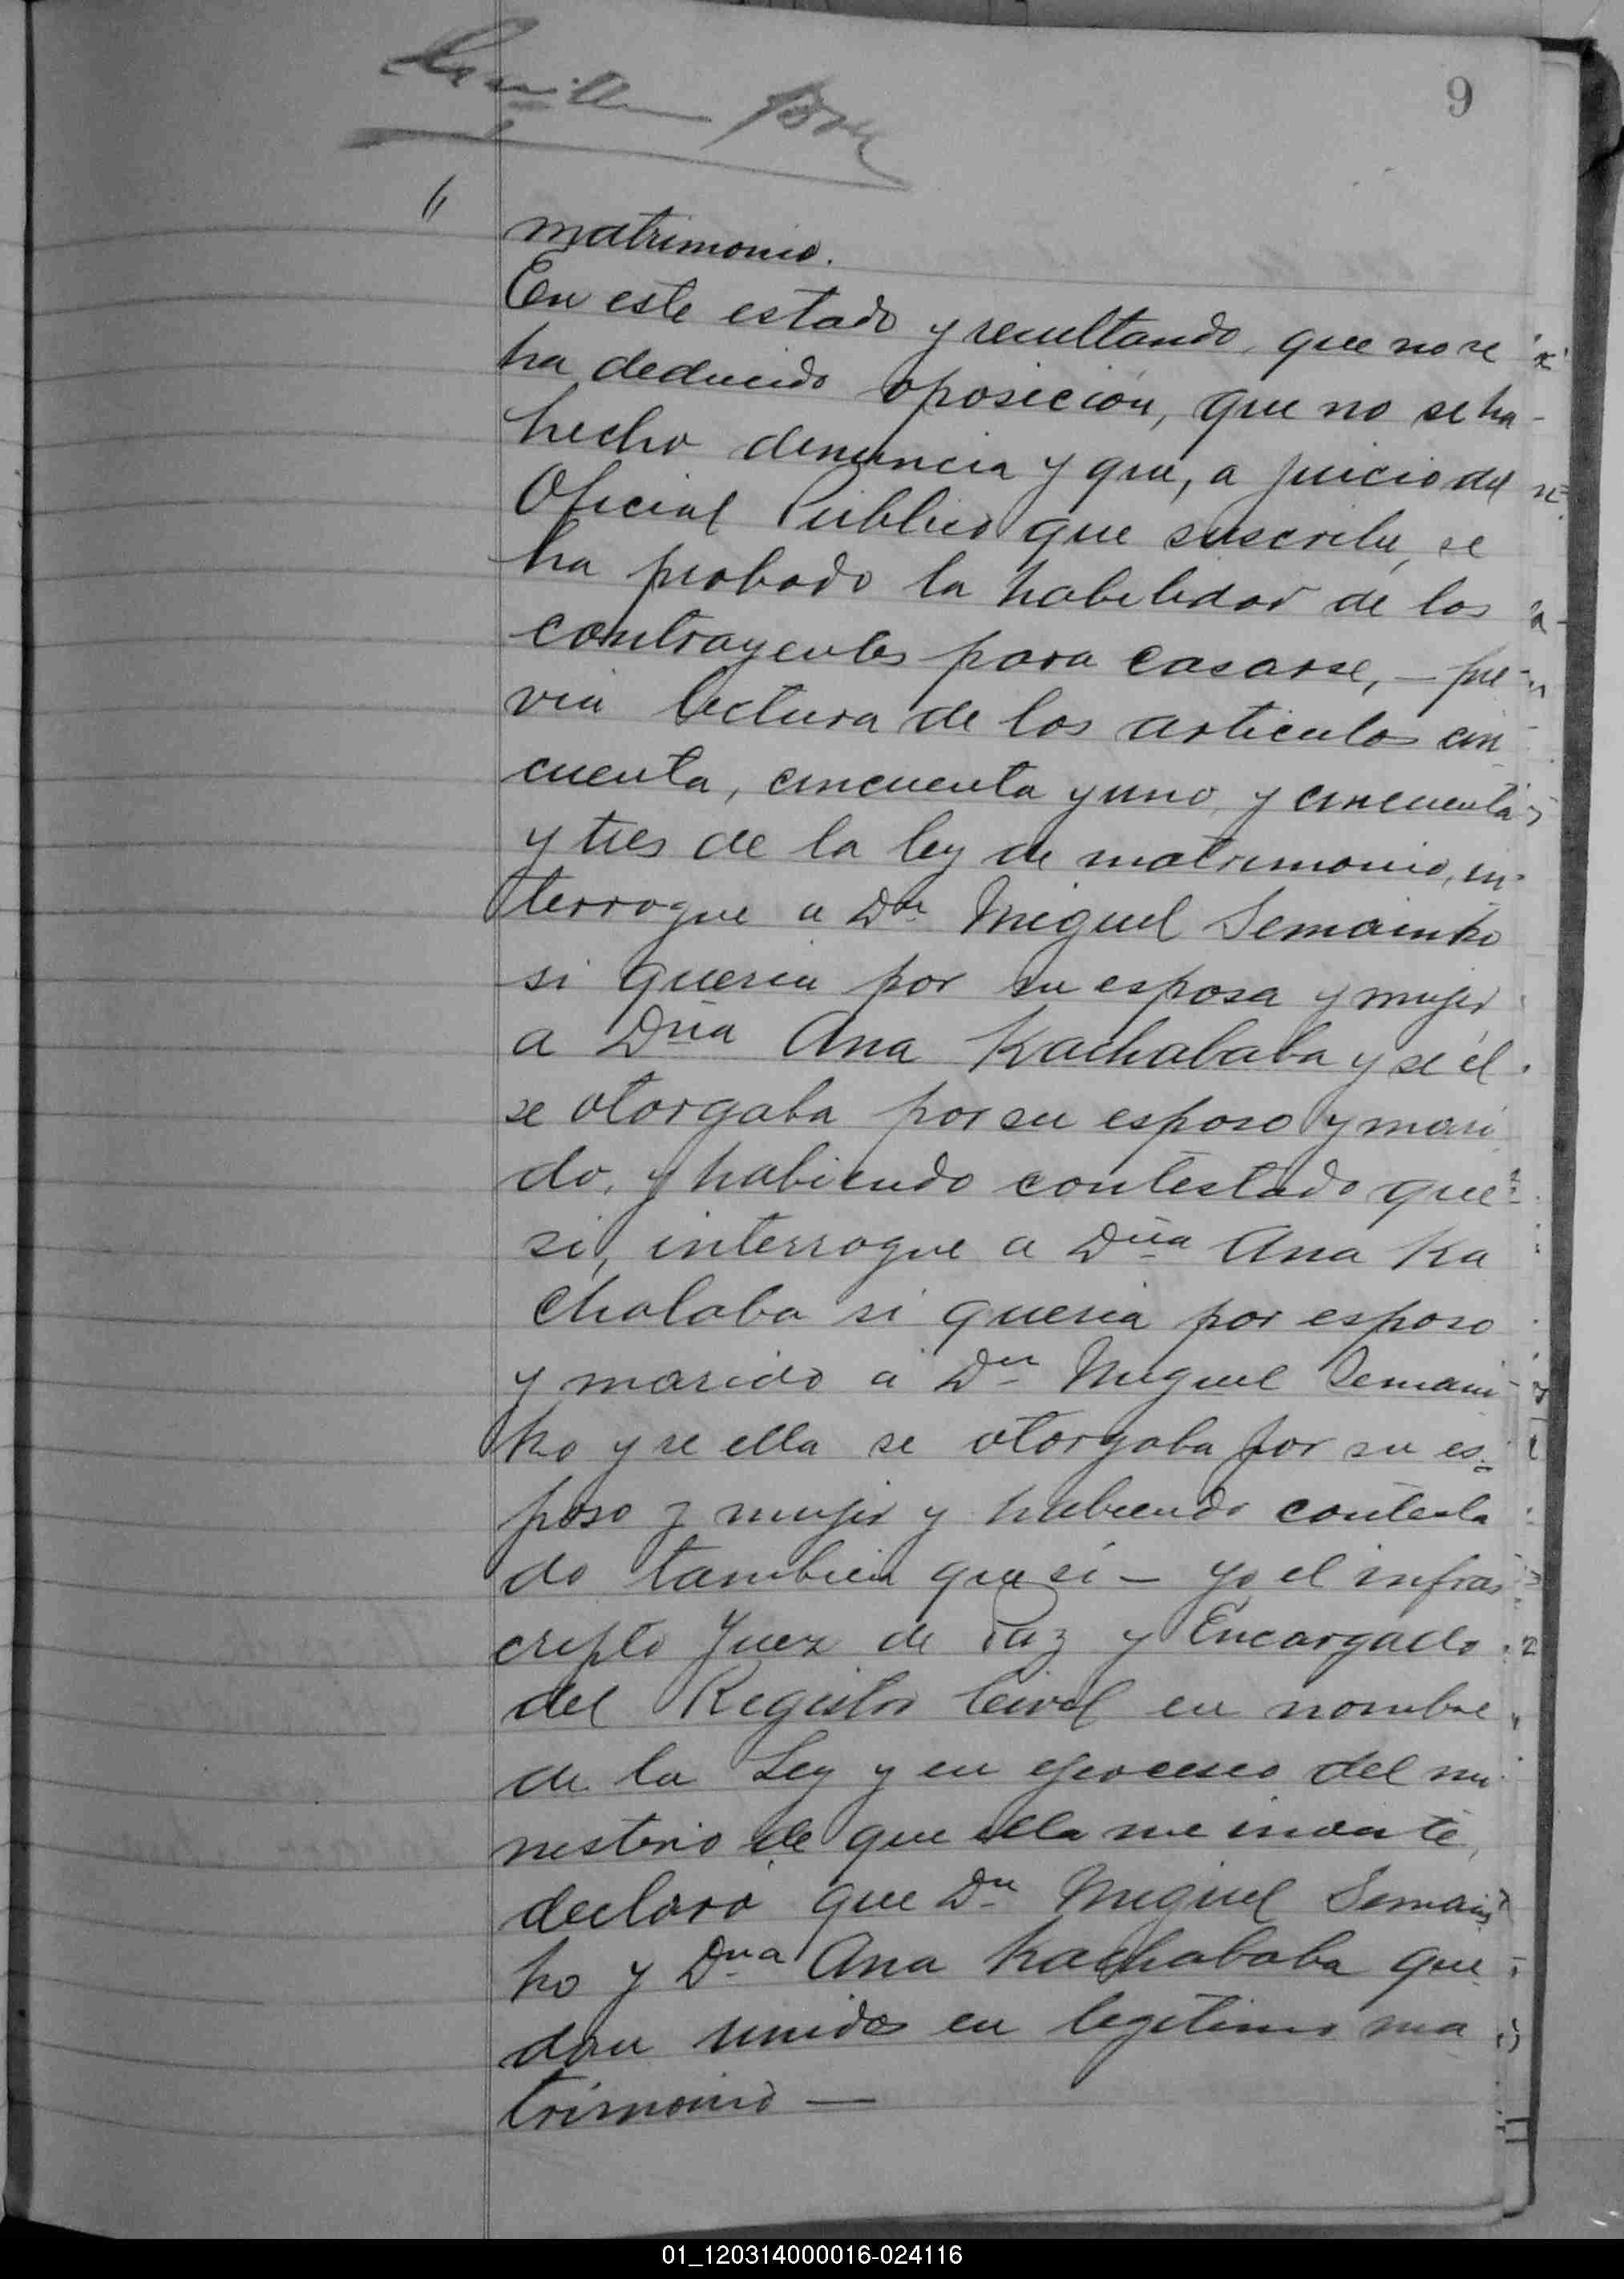 9
matrimonio.
En este estado y resultando, que no se
ha deducido oposición, que no se ha
hecho denuncia y que, a juicio del
Oficial Público que suscribe, se
ha probado la habilidad de los
contrayentes para casarse, – pre-
via lectura de los articulos cin
cuenta, cincuenta y uno, y cincuenta
y tres de la ley de matrimonio, in-
terrogue a Dn Miguel Semainko
si queria por su esposa y mujer
a Dña Ana Kachababa y si él
se otorgaba por su esposo y mari
do, y habiendo contestado que
si, interrogue a Dña Ana Ka
chababa si queria por esposo
y marido a Dn Miguel Semain
ko y si ella se otorgaba por su es-
poso y mujer y habiendo contesta
do tambien que si – yo el infras
cripto Juez de Paz y Encargado
del Registro Civil en nombre
de la Ley y en ejercicio del mi
nisterio de que ella me inviste,
declaro que Dn Miguel Semain
ko y Dna Ana Kachababa que
dan unidos en legitimo ma
trimonio —
01_120314000016-024116